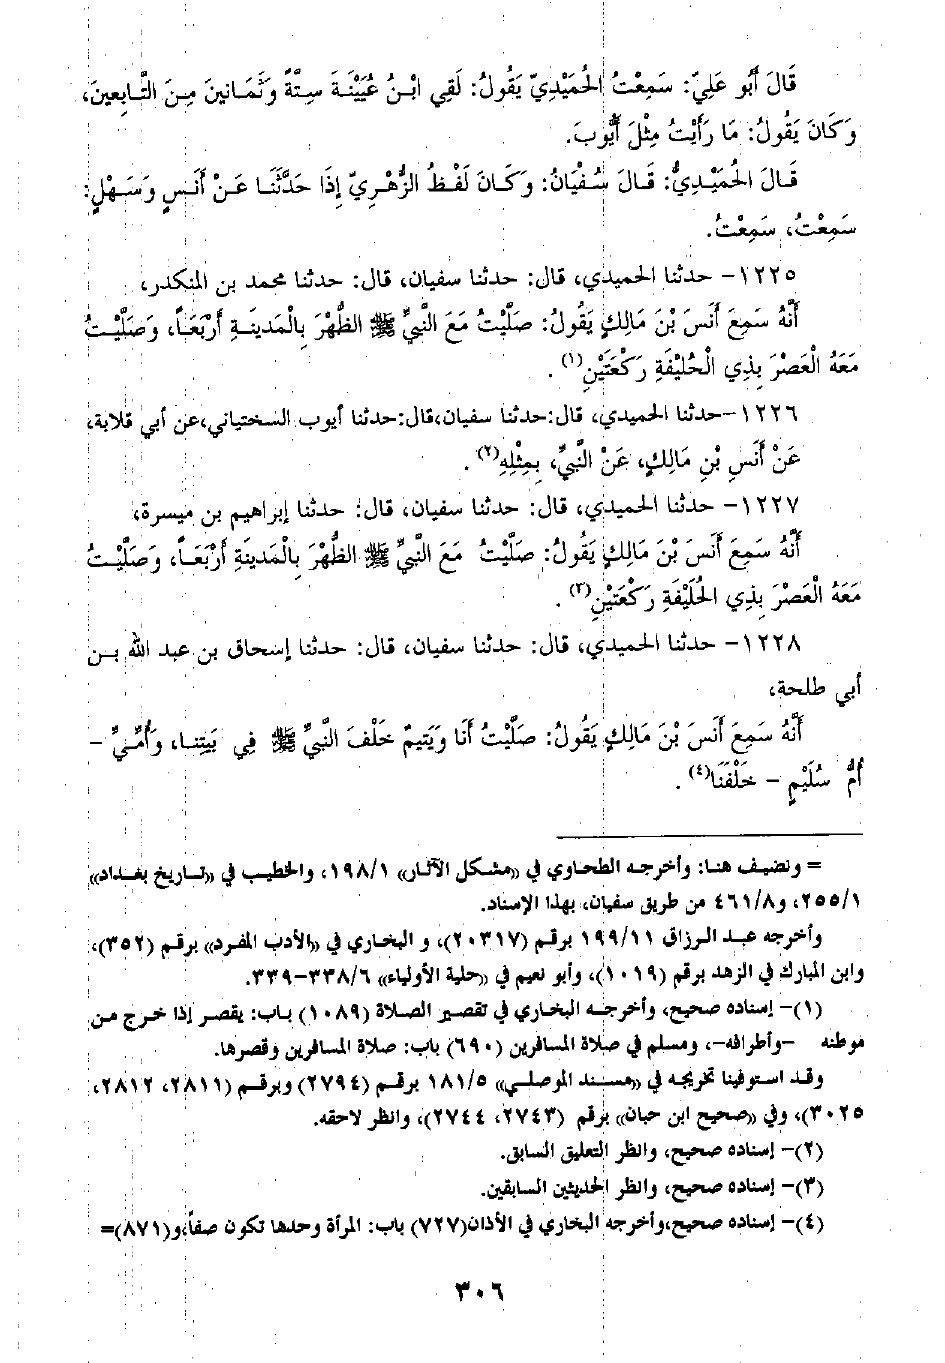 قَالَ أَبُو عَلِيّ: سَمِعْتُ الحُمَيْدِيّ يَقُولُ: لَقِي ابْنُ عُيَيْنَةَ سِتَّةً وَثَمَانِينَ مِنَ التَّابِعِينَ،
وَكَانَ يَقُولُ: مَا رَأَيْتُ مِثْلَ أَيُّوبَ.
قَالَ الحُمَيْدِيُّ: قَالَ سُفْيَانُ: وَكَانَ لَفْظُ الزُّهْرِيّ إِذَا حَدَّثَنَا عَنْ أَنَسٍ وَسَهْلٍ:
سَمِعْتُ، سَمِعْتُ.
١٢٢٥- حدثنا الحميدي، قال: حدثنا سفيان، قال: حدثنا محمد بن المنكدر،
أَنَّهُ سَمِعَ أَنَسَ بْنَ مَالِكٍ يَقُولُ: صَلَّيْتُ مَعَ النَّبِيِّ ﷺ الظُّهْرَ بِالْمَدِينَةِ أَرْبَعَاً، وَصَلَّيْتُ
مَعَهُ الْعَصْرَ بِذِي الْحُلَيْفَةِ رَكْعَتَيْنِ(١).
١٢٢٦-حدثنا الحميدي، قال:حدثنا سفيان،قال:حدثنا أيوب السختياني،عن أبي قلابة،
عَنْ أَنَسِ بْنِ مَالِكٍ، عَنْ النَّبِيِّ، بِمِثْلِهِ(٢).
١٢٢٧- حدثنا الحميدي، قال: حدثنا سفيان، قال: حدثنا إبراهيم بن ميسرة،
أَنَّهُ سَمِعَ أَنَسَ بْنَ مَالِكٍ يَقُولُ: صَلَّيْتُ مَعَ النَّبِيِّ ﷺ الظُّهْرَ بِالْمَدِينَةِ أَرْبَعَاً، وَصَلَّيْتُ
مَعَهُ الْعَصْرَ بِذِي الحُلَيْفَةِ رَكْعَتَيْنِ(٣).
١٢٢٨- حدثنا الحميدي، قال: حدثنا سفيان، قال: حدثنا إسحاق بن عبد الله بن
أبي طلحة،
أَنَّهُ سَمِعَ أَنَسَ بْنَ مَالِكٍ يَقُولُ: صَلَّيْتُ أَنَا وَيَتِيمٌ خَلْفَ النَّبِيِّ ﷺ فِي بَيْتِنَا، وَأُمِّيَّ -
أُمُّ سُلَيْمٍ - خَلْفَنَا(٤).
= ونضيف هنا: وأخرجه الطحاوي في «مشكل الآثار» ١٩٨/١، والخطيب في «تاريخ بغداد»
٢٥٥/١، و٤٦١/٨ من طريق سفيان، بهذا الإسناد.
وأخرجه عبد الرزاق ١٩٩/١١ برقم (٢٠٣١٧)، و البخاري في «الأدب المفرد» برقم (٣٥٢)،
وابن المبارك في الزهد برقم (١٠١٩)، وأبو نعيم في «حلية الأولياء» ٣٣٨/٦-٣٣٩.
(١)- إسناده صحيح، وأخرجه البخاري في تقصير الصلاة (١٠٨٩) باب: يقصر إذا خرج من
موطنه -وأطرافه-، ومسلم في صلاة المسافرين (٦٩٠) باب: صلاة المسافرين وقصرها.
وقد استوفينا تخريجه في «مسند الموصلي» ١٨١/٥ برقم (٢٧٩٤) وبرقم (٢٨١١، ٢٨١٢،
٣٠٢٥)، وفي «صحيح ابن حبان» برقم (٢٧٤٣، ٢٧٤٤)، وانظر لاحقه.
(٢)- إسناده صحيح، وانظر التعليق السابق.
(٣)- إسناده صحيح، وانظر الحديثين السابقين.
(٤)- إسناده صحيح،وأخرجه البخاري في الأذان(٧٢٧) باب: المرأة وحدها تكون صفاً،و(٨٧١)=
٣٠٦